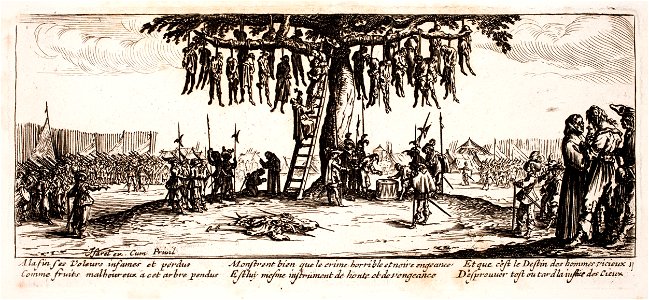 Israel ex. Cum Privil
A la fin ces Voleurs infames et perdus
Comme fruits malheureux a cet arbre pendus
Monstrent bien que le crime horrible et noire engeance
Est luy mesme instrument de honte et de vengeance
Et que cest le Destin des hommes vicieux
Desprouver tost ou tard la justice des Cieux
11